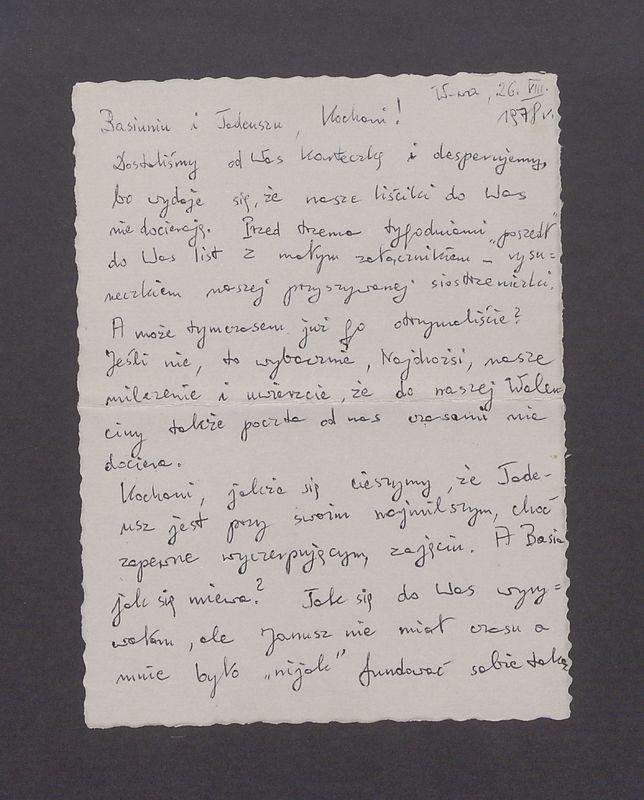 W-wa, 26. VIII.
1978 r.
Basiuniu i Tadeuszu, Kochani!
Dostaliśmy od Was karteczkę i desperujemy,
bo wydaje się, że nasze liściki do Was
nie docierają. Przed trzema tygodniami „poszedł”
do Was list z małym załącznikiem – rysu=
neczkiem naszej przyszywanej siostrzeniczki.
A może tymczasem już go otrzymaliście?
Jeśli nie, to wybaczcie, Najdrożsi, nasze
milczenie i uwierzcie, że do naszej Walen=
ciny także poczta od nas czasami nie
dociera.
Kochani, jakże się cieszymy, że Tade-
usz jest przy swoim najmilszym, choć
zapewne wyczerpującym, zajęciu. A Basia
jak się miewa? Tak się do Was wyry=
wałam, ale Janusz nie miał czasu a
mnie było „nijak” fundować sobie taką